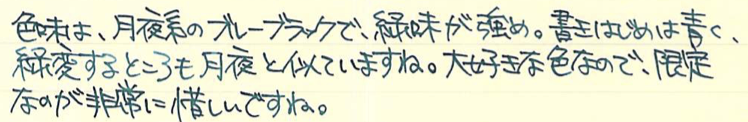 色味は、月夜系のブルーブラックで、緑味が強め。書きはじめは青く、
緑変するところも月夜と似ていますね。大好きな色なので、限定
なのが非常に惜しいですね。